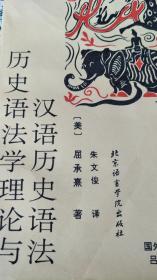 历史语法学理论与
汉语历史语法
[美]
屈承熹 著
朱文俊 译
北京语言学院出版社
国外
吕